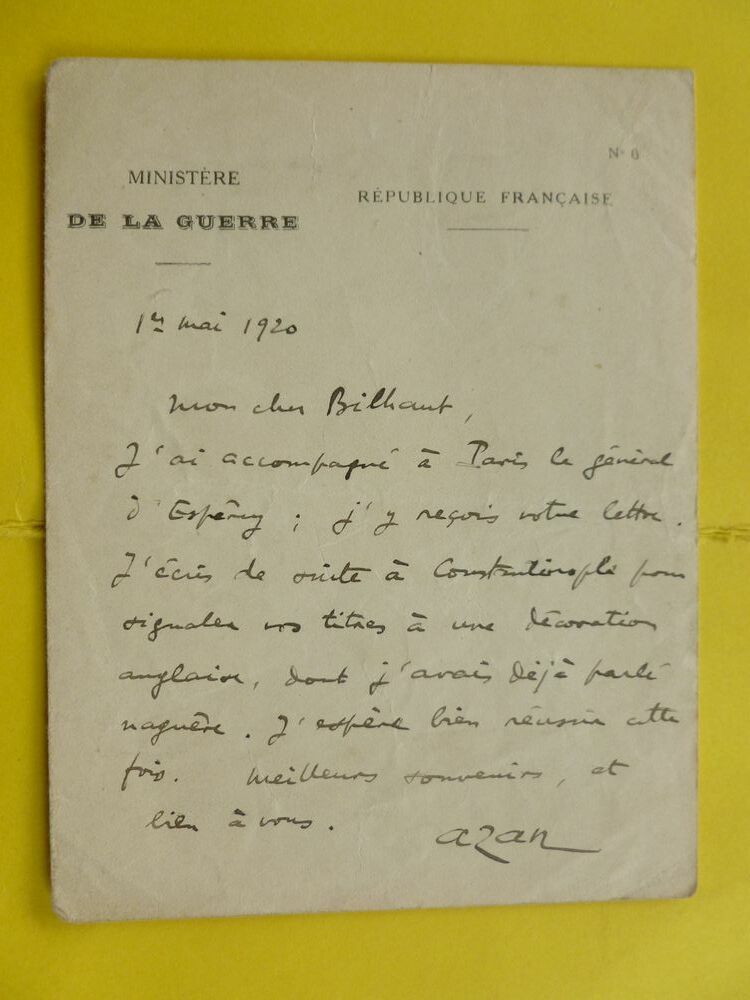 N° 6
MINISTÈRE
DE LA GUERRE
RÉPUBLIQUE FRANÇAISE
1er mai 1920
Mon cher Bilhaut,
J'ai accompagné à Paris le général
d'Espérey ; j'y reçois votre lettre.
J'écris de suite à Constantinople pour
signaler vos titres à une décoration
anglaise, dont j'avais déjà parlé
naguère. J'espère bien réussir cette
fois. Meilleurs souvenirs, et
bien à vous.
AZAN